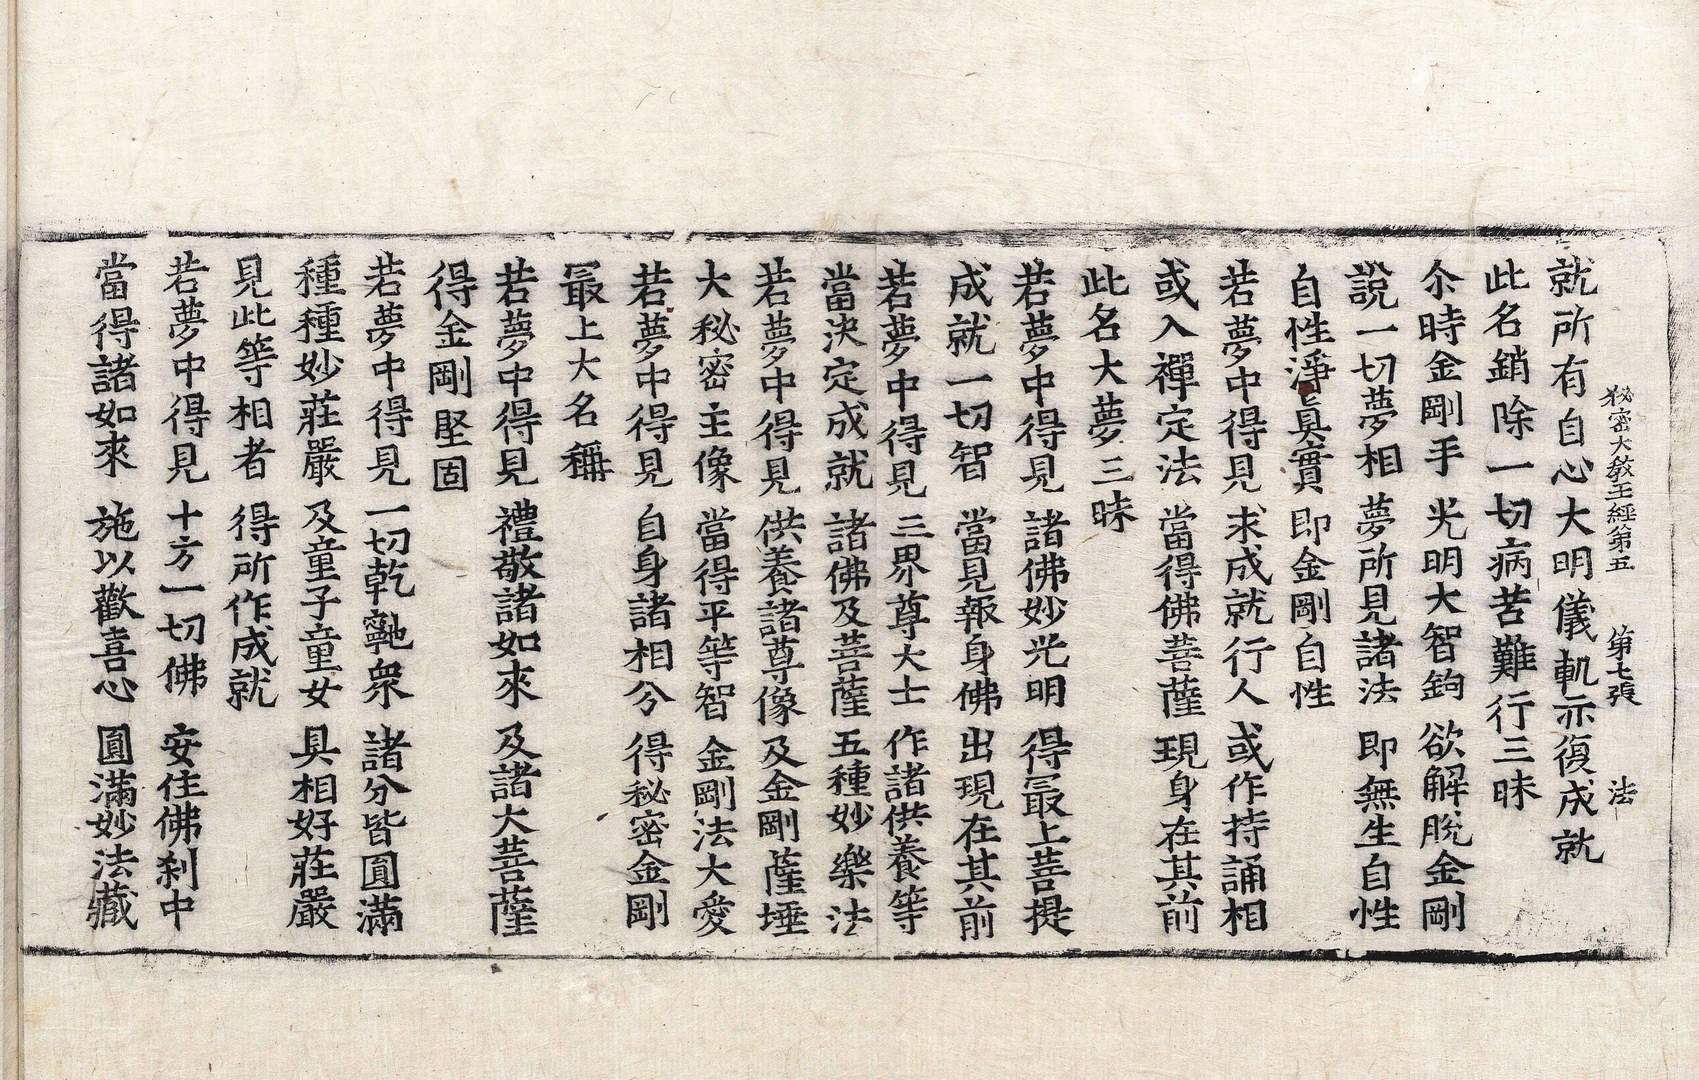 秘密大教王經第五 第七張 法
就所有自心大明儀軌亦復成就
此名銷除一切病苦難行三昧
尒時金剛手 光明大智鉤 欲解脫金剛
說一切夢相 夢所見諸法 即無生自性
自性淨眞實 即金剛自性
若夢中得見 求成就行人 或作持誦相
或入禪定法 當得佛菩薩 現身在其前
此名大夢三昧
若夢中得見 諸佛妙光明 得㝡上菩提
成就一切智 當見報身佛 出現在其前
若夢中得見 三界尊大士 作諸供養等
當決定成就 諸佛及菩薩 五種妙樂法
若夢中得見 供養諸尊像 及金剛薩埵
大秘密主像 當得平等智 金剛法大愛
若夢中得見 自身諸相分 得秘密金剛
㝡上大名稱
若夢中得見 禮敬諸如來 及諸大菩薩
得金剛堅固
若夢中得見 一切乾闥衆 諸分皆圓滿
種種妙莊嚴 及童子童女 具相好莊嚴
見此等相者 得所作成就
若夢中得見 十方一切佛 安住佛刹中
當得諸如來 施以歡喜心 圓滿妙法藏